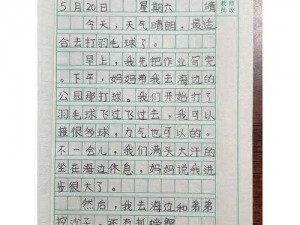 5月20日 星期六 晴
今天,天气晴朗,最适
合去打羽毛球了。
早上,我先把作业写完。
下午,妈妈带我去海边的
公园那打球。我们开始打了
羽毛球飞过飞过去,我可以
接很多球,力气也可以的。
不一会儿,我们满头大汗的
坐在海边休息,妈妈说我进
步很大了。
然后,我去海边和弟弟
挖沙子,还有抓螃蟹